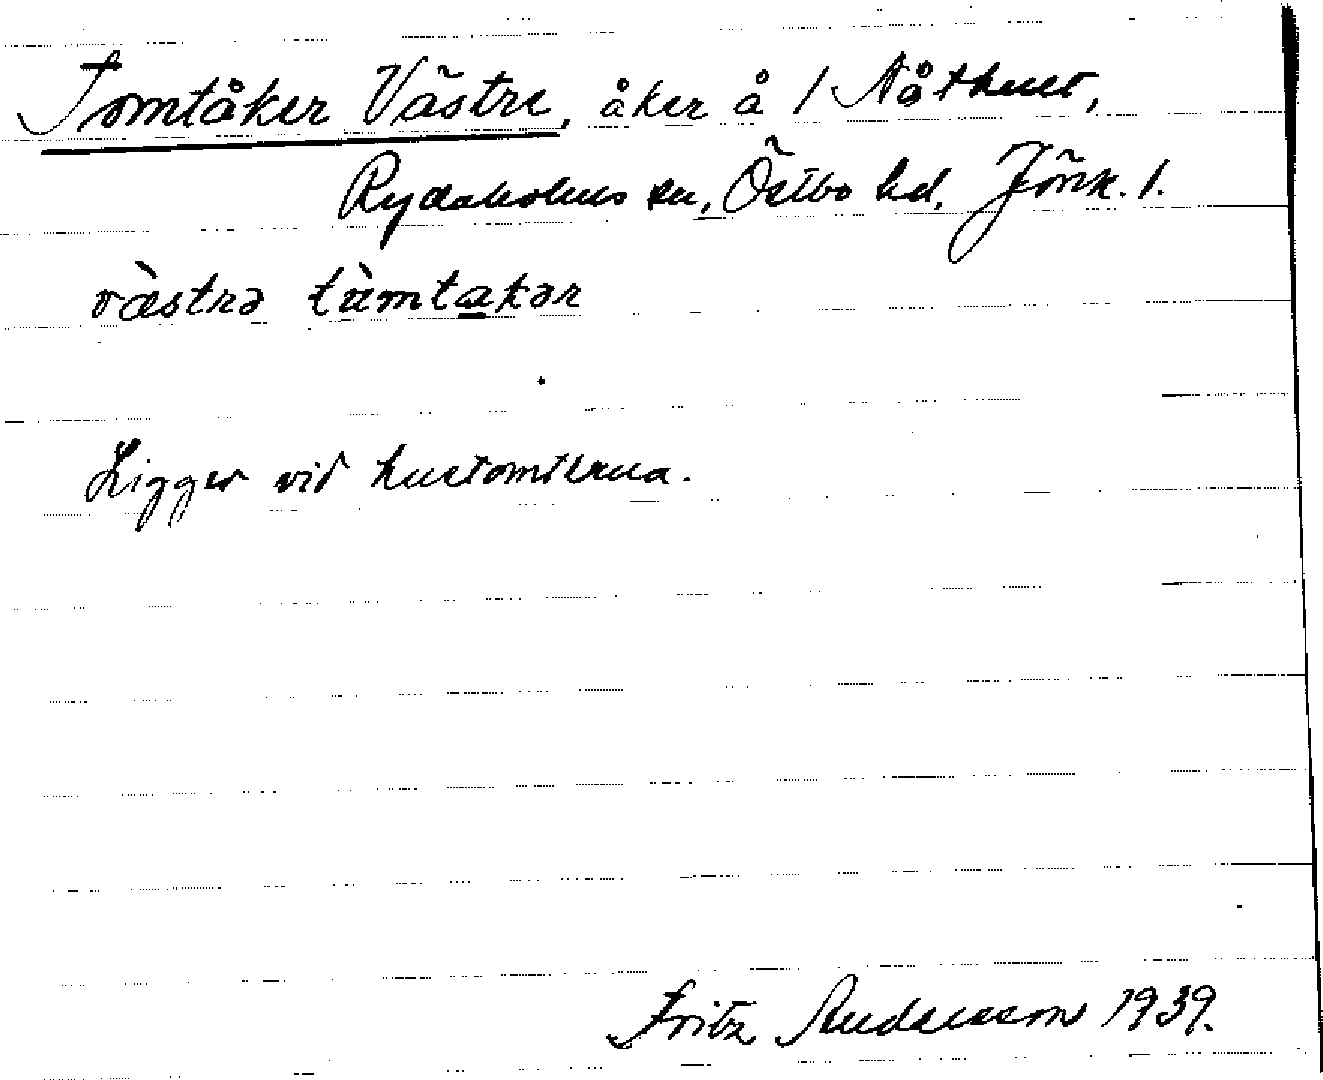 Tomtåker Västre, åker å 1 Nåthult,
Rydaholms sn, Östbo hd, Jönk. l.
vàstrə tàmtakər
Ligger vid hustomterna.
Fritz Andersson 1939.